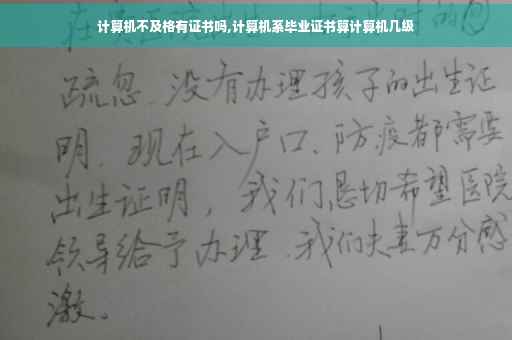 计算机不及格有证书吗,计算机系毕业证书算计算机几级
疏忽、没有办理孩子的出生证
明、现在入户口、防疫都需要
出生证明,我们恳切希望医院
领导给予办理、我们夫妻万分感
激。